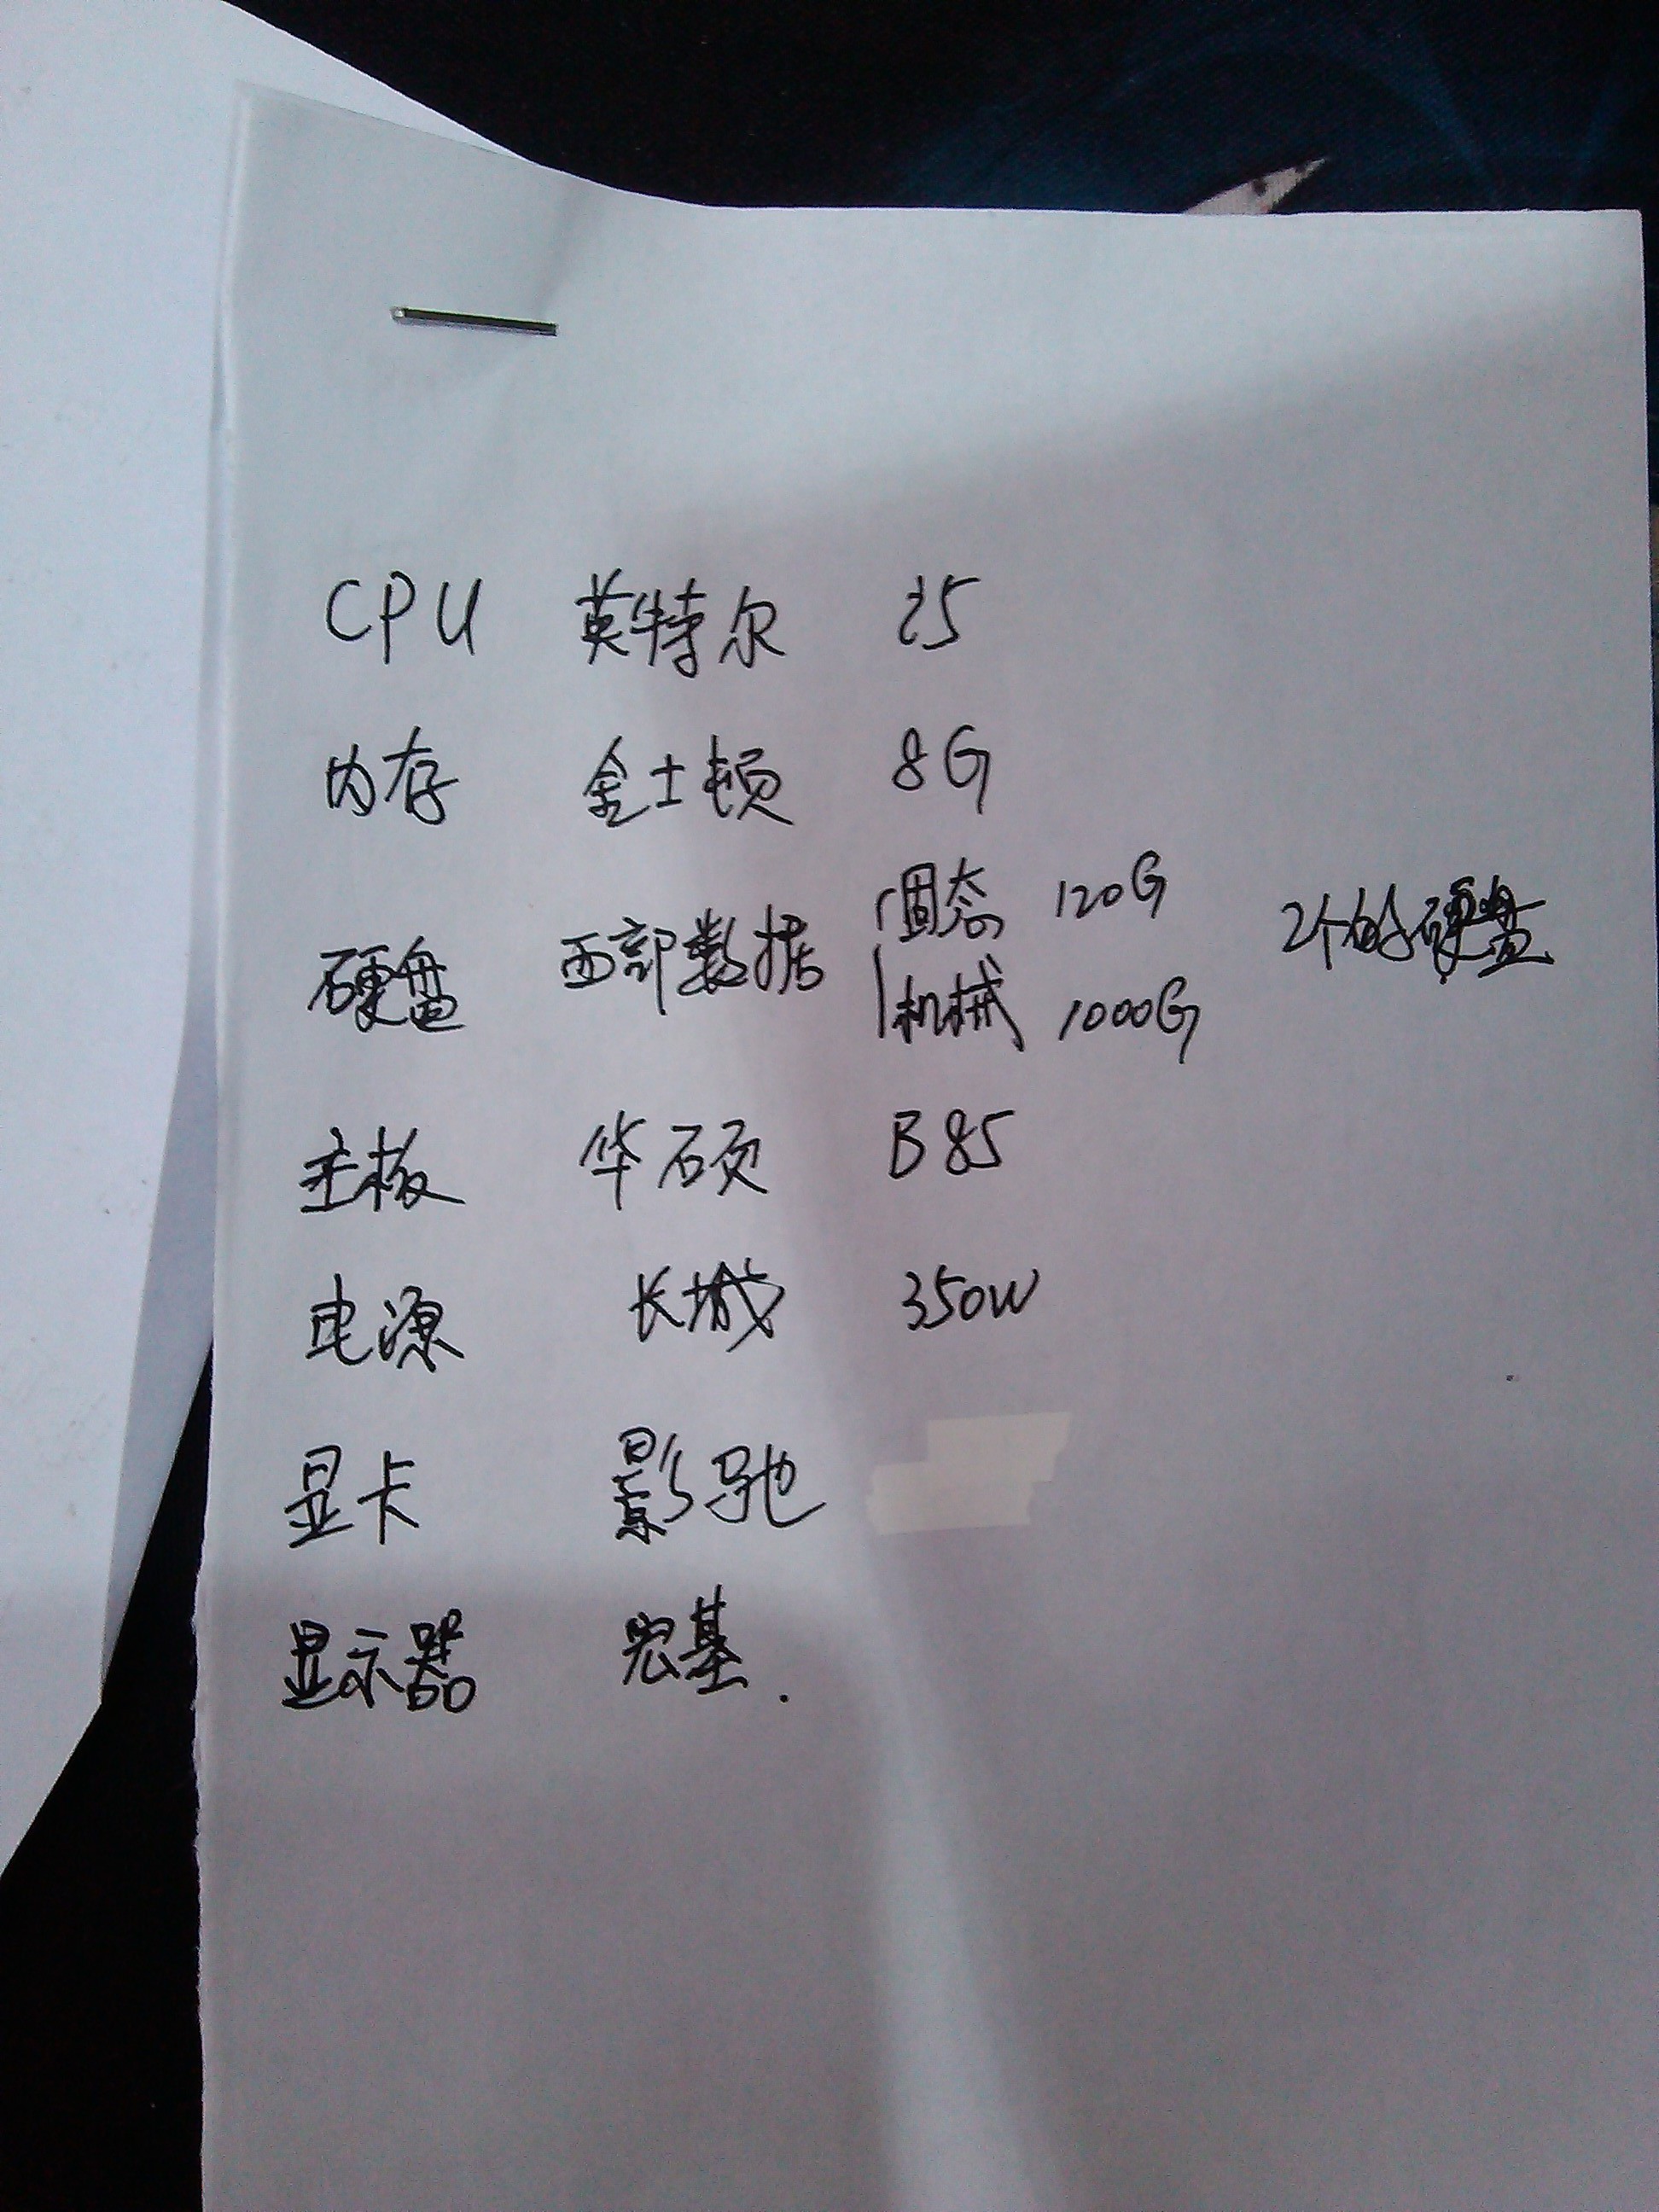 CPU 英特尔 i5
内存 金士顿 8G
硬盘 西部数据 固态 120G 2个的硬盘
机械 1000G
主板 华硕 B85
电源 长城 350W
显卡 影驰
显示器 宏基.